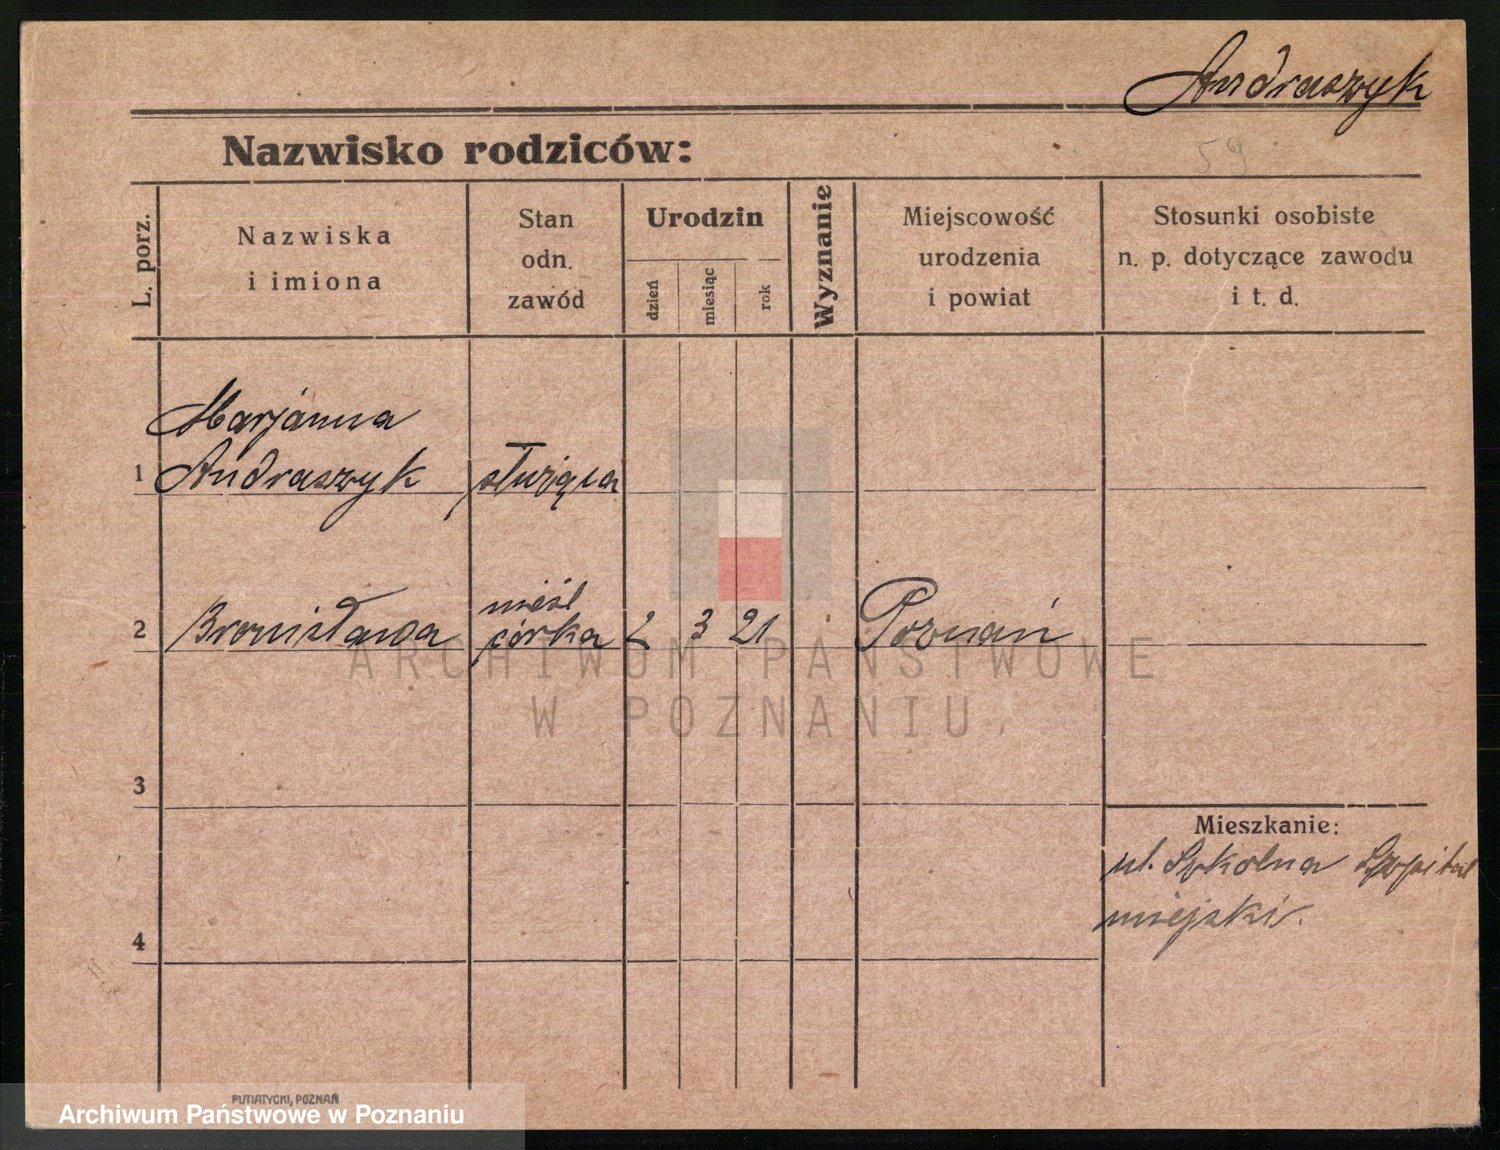 Andraszyk
Nazwisko rodziców:
59
L. porz.
Nazwiska
i imiona
Stan
odn.
zawód
Urodzin
dzień
miesiąc
rok
Wyznanie
Miejscowość
urodzenia
i powiat
Stosunki osobiste
n. p. dotyczące zawodu
i t. d.
Marjanna
1 Andraszyk służąca
nieśl
2 Bronisława córka 2 3 21 Poznań
ARCHIWUM PAŃSTWOWE
W POZNANIU
3
Mieszkanie:
ul. Szkolna Szpital
miejski.
4
PUTIATYCKI, POZNAŃ
Archiwum Państwowe w Poznaniu